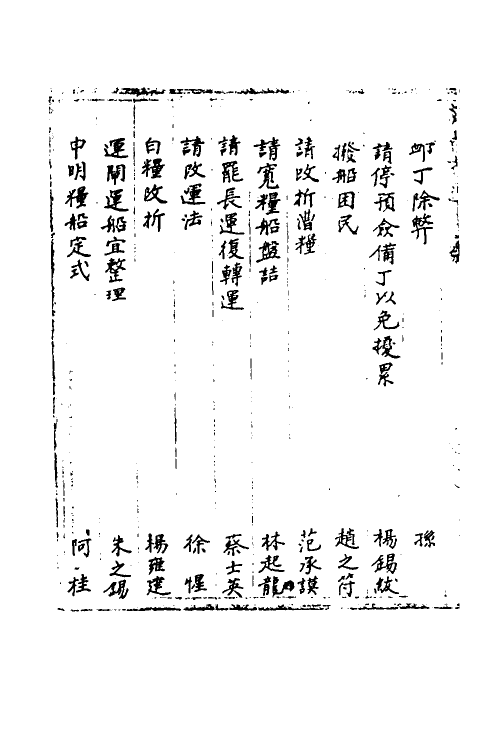 邮丁除弊 孫
請停預僉備丁以免擾累 楊錫紱
撥船困民 趙之符
請改折漕糧 范承謨
請寬糧船盤詰 林起龍
請罷長運復轉運 蔡士英
請改運法 徐惺
白糧改折 楊雍建
運閘運船宜整理 朱之錫
申明糧船定式 阿桂